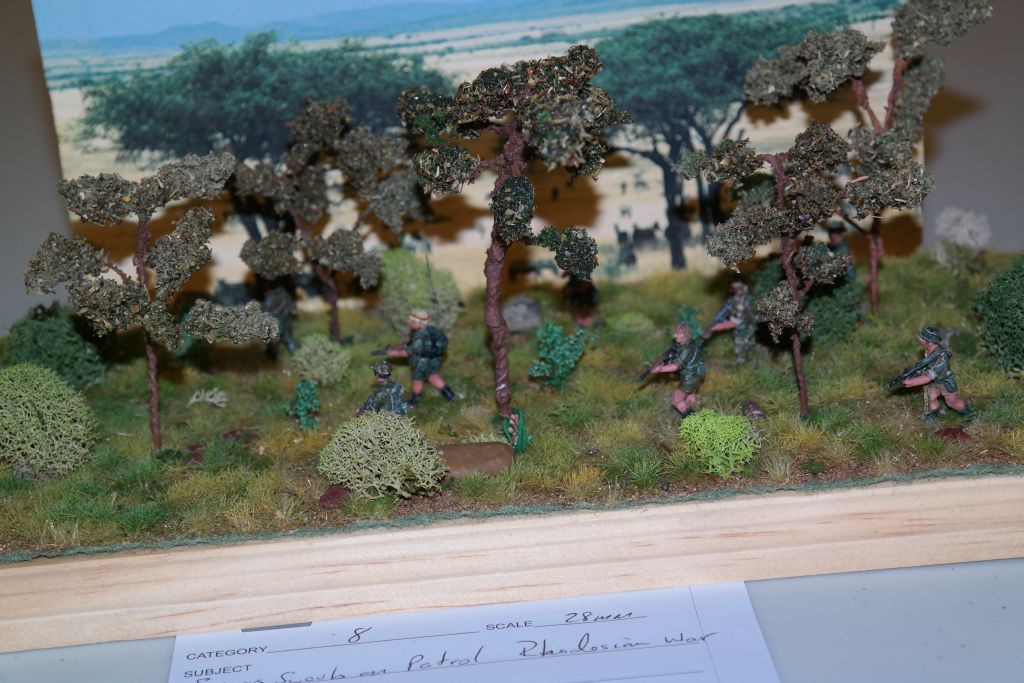 CATEGORY 8 SCALE 28mm
SUBJECT Scouts on Patrol Rhodesian War